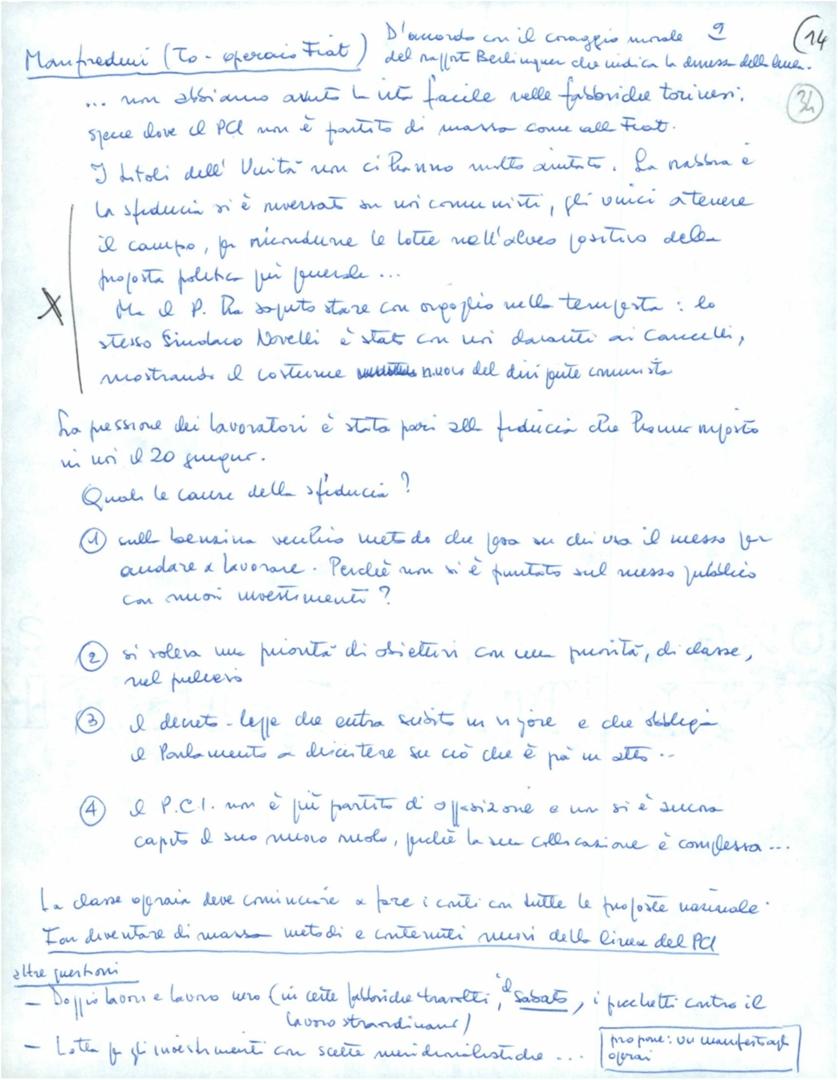 Manfredini (To - operaio Fiat) D'accordo con il coraggio morale 9 14
del rapport Berlinguer che indica la della linea.
34
... non abbiamo avuto la vita facile nelle fabbriche torinesi,
specie dove il PCI non è partito di massa come alla Fiat.
I titoli dell'Unità non ci hanno molto aiutato. La rabbia e
la sfiducia si è riversata su noi comunisti, gli unici a tenere
il campo, per ricondurre le lotte nell'alveo positivo della
proposta politica più generale ...
X Ma il P. ha saputo stare con orgoglio nella tempesta: lo
stesso Sindaco Novelli è stato con noi davanti ai Cancelli,
mostrando il costume nuovo del dirigente comunista
La pressione dei lavoratori è stata pari alla fiducia che hanno riposto
in noi il 20 giugno.
Quali le cause della sfiducia?
1 sulla benzina vecchio metodo che pesa su chi usa il mezzo per
andare a lavorare. Perché non si è puntato sul mezzo pubblico
con nuovi investimenti?
2 si voleva una priorità di obiettivi con una priorità, di classe,
nel prelievo
3 il decreto-legge che entra subito in vigore e che obbliga
il Parlamento a discutere su ciò che è già in atto ..
4 il P.C.I. non è più partito di opposizione e non si è ancora
capito il suo nuovo ruolo, perché la sua collocazione è complessa ...
La classe operaia deve cominciare a fare i conti con tutte le proposte nazionale.
Far diventare di massa metodi e contenuti nuovi della linea del PCI
altre questioni
- Doppio lavoro e lavoro nero (in certe fabbriche travolti, il Sabato, i picchetti contro il
lavoro straordinario)
- Lotta per gli investimenti con scelte meridionalistiche ... propone: un manifesto agli
operai